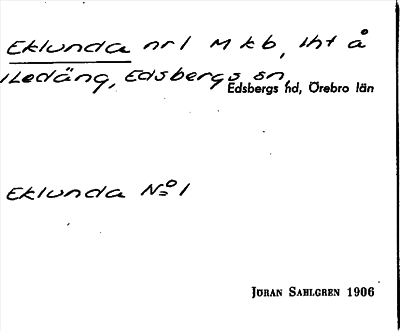 Eklunda nr 1 M kb, lht å
Ledäng, Edsbergs sn,
Edsbergs hd, Örebro län
Eklunda No 1
JÖRAN SAHLGREN 1906